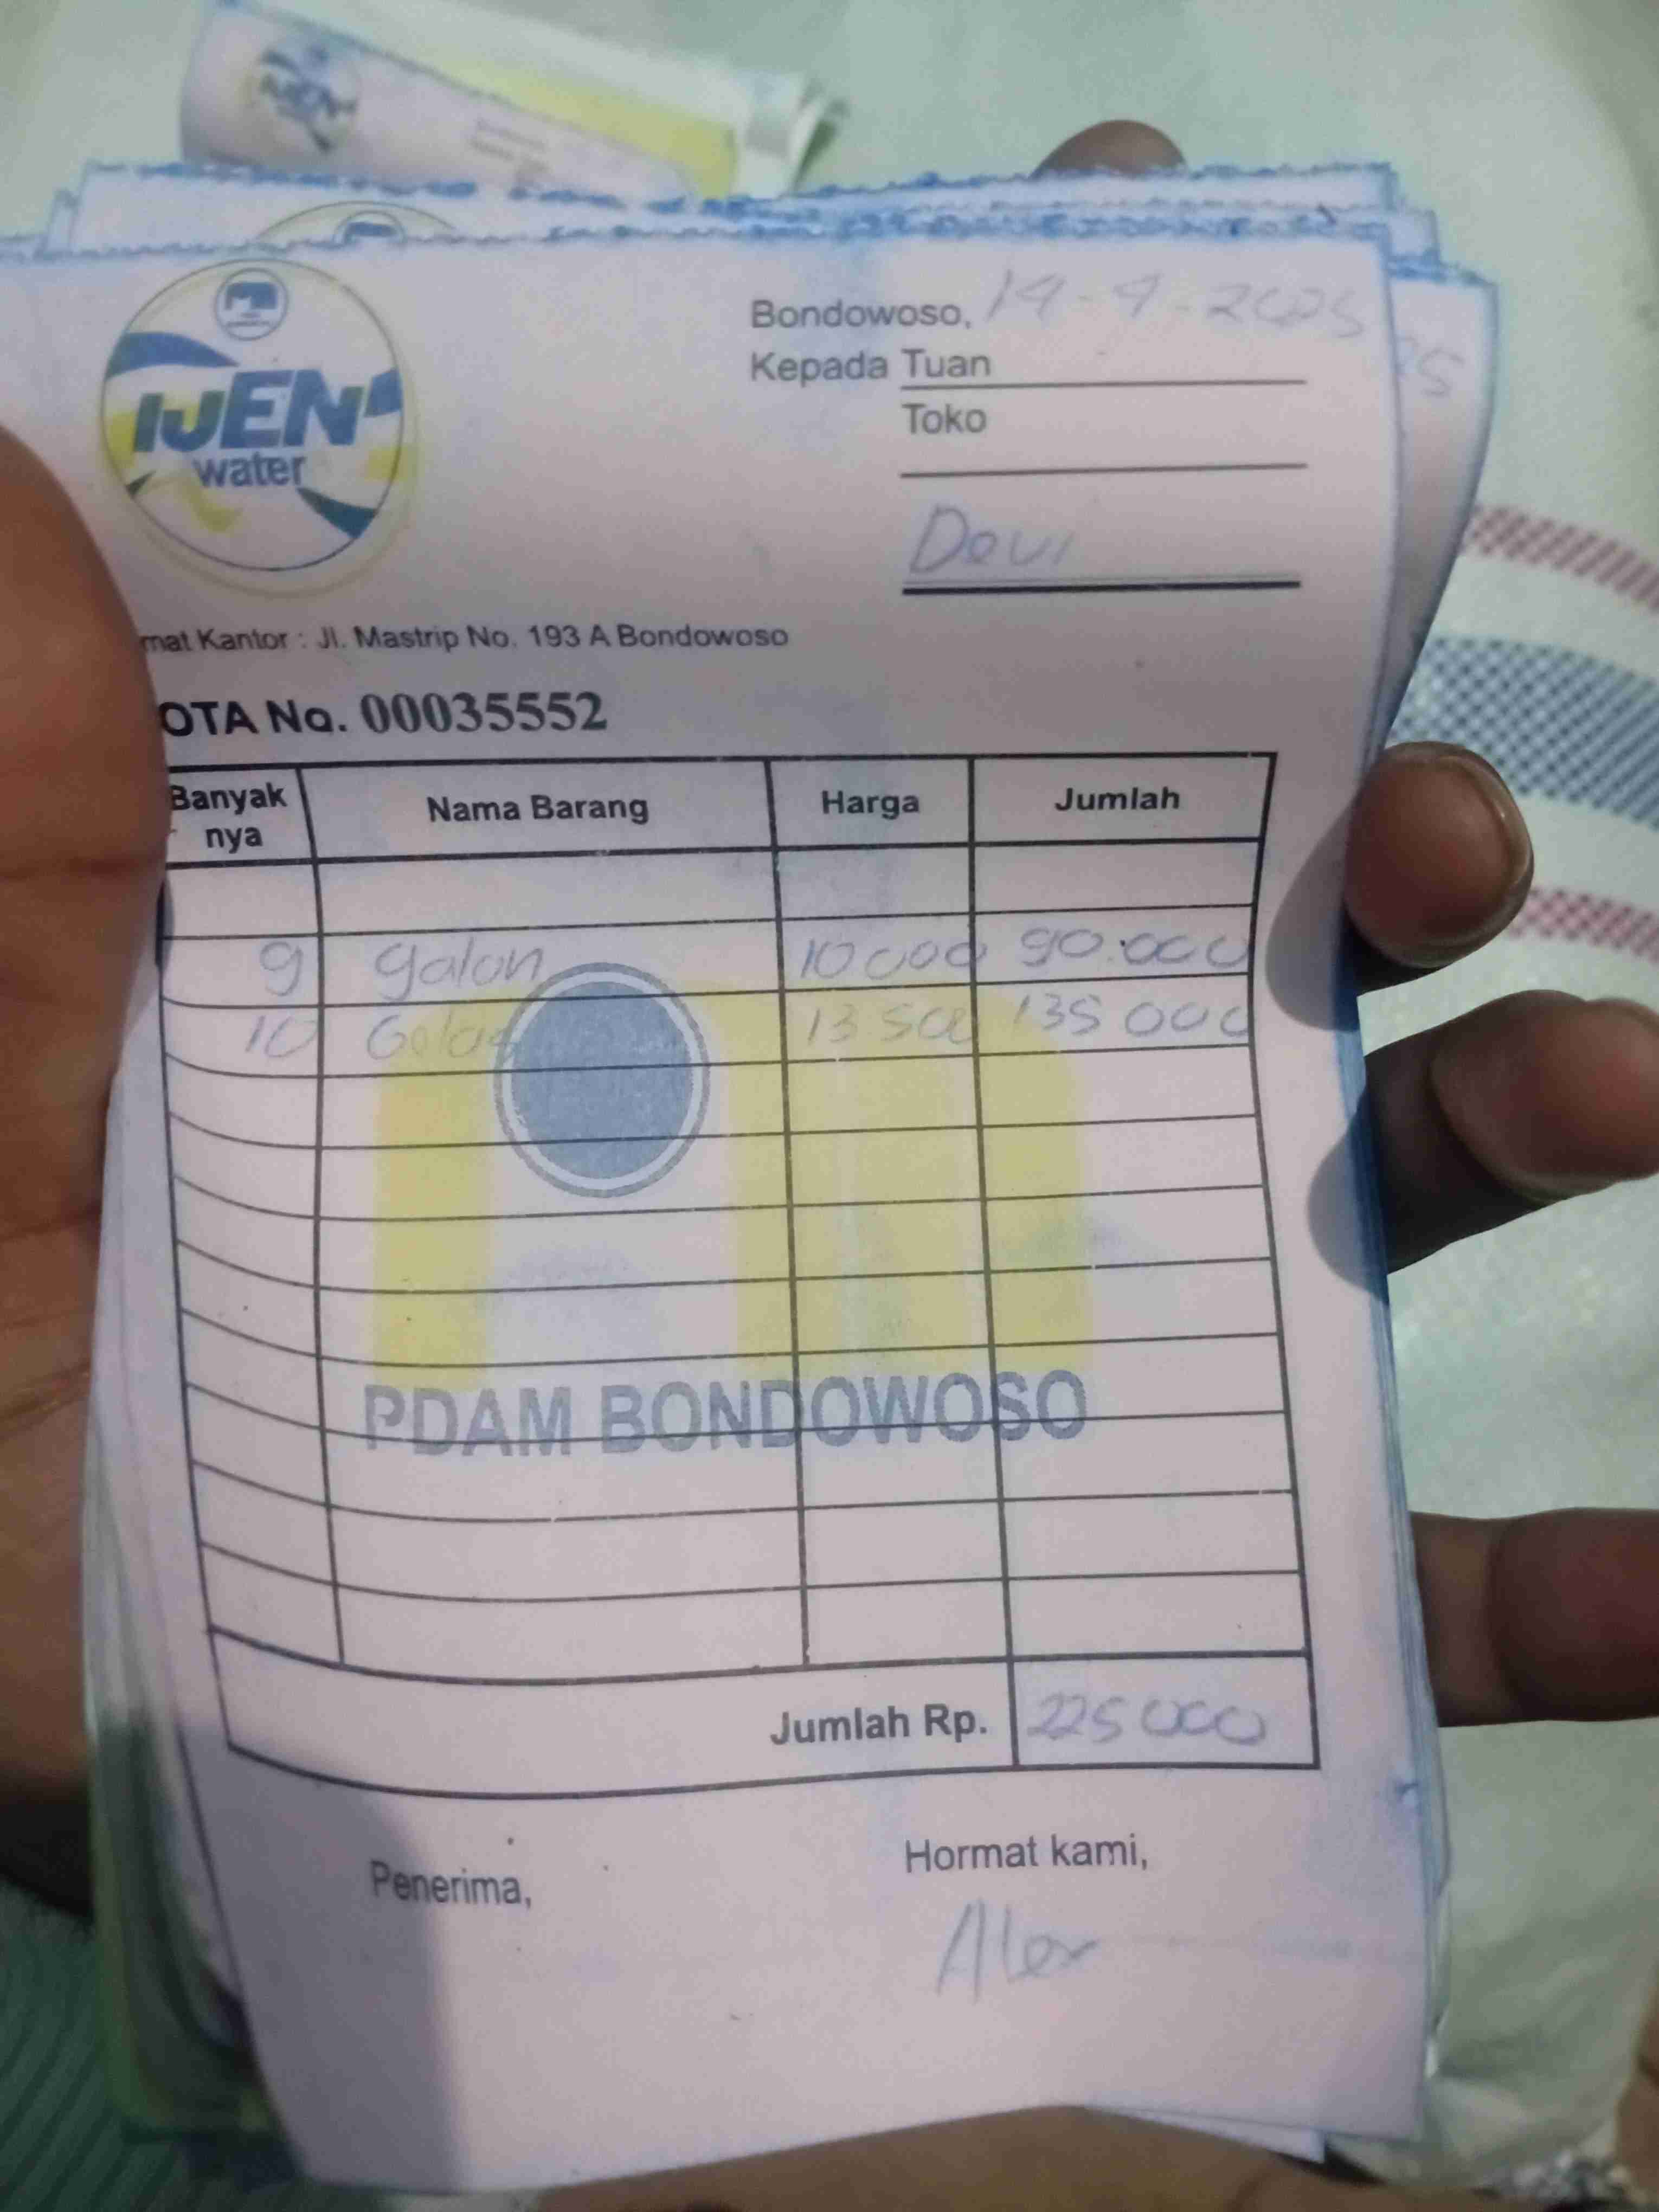 IJEN
water
Bondowoso, 19-9-2025
Kepada Tuan
Toko
Devi
mat Kantor : Jl. Mastrip No. 193 A Bondowoso
OTA No. 00035552
Banyak nya Nama Barang Harga Jumlah
9 galon 10000 90.000
10 Gelas 13500 135 000
PDAM BONDOWOSO
Jumlah Rp. 225 000
Penerima, Hormat kami,
Alex